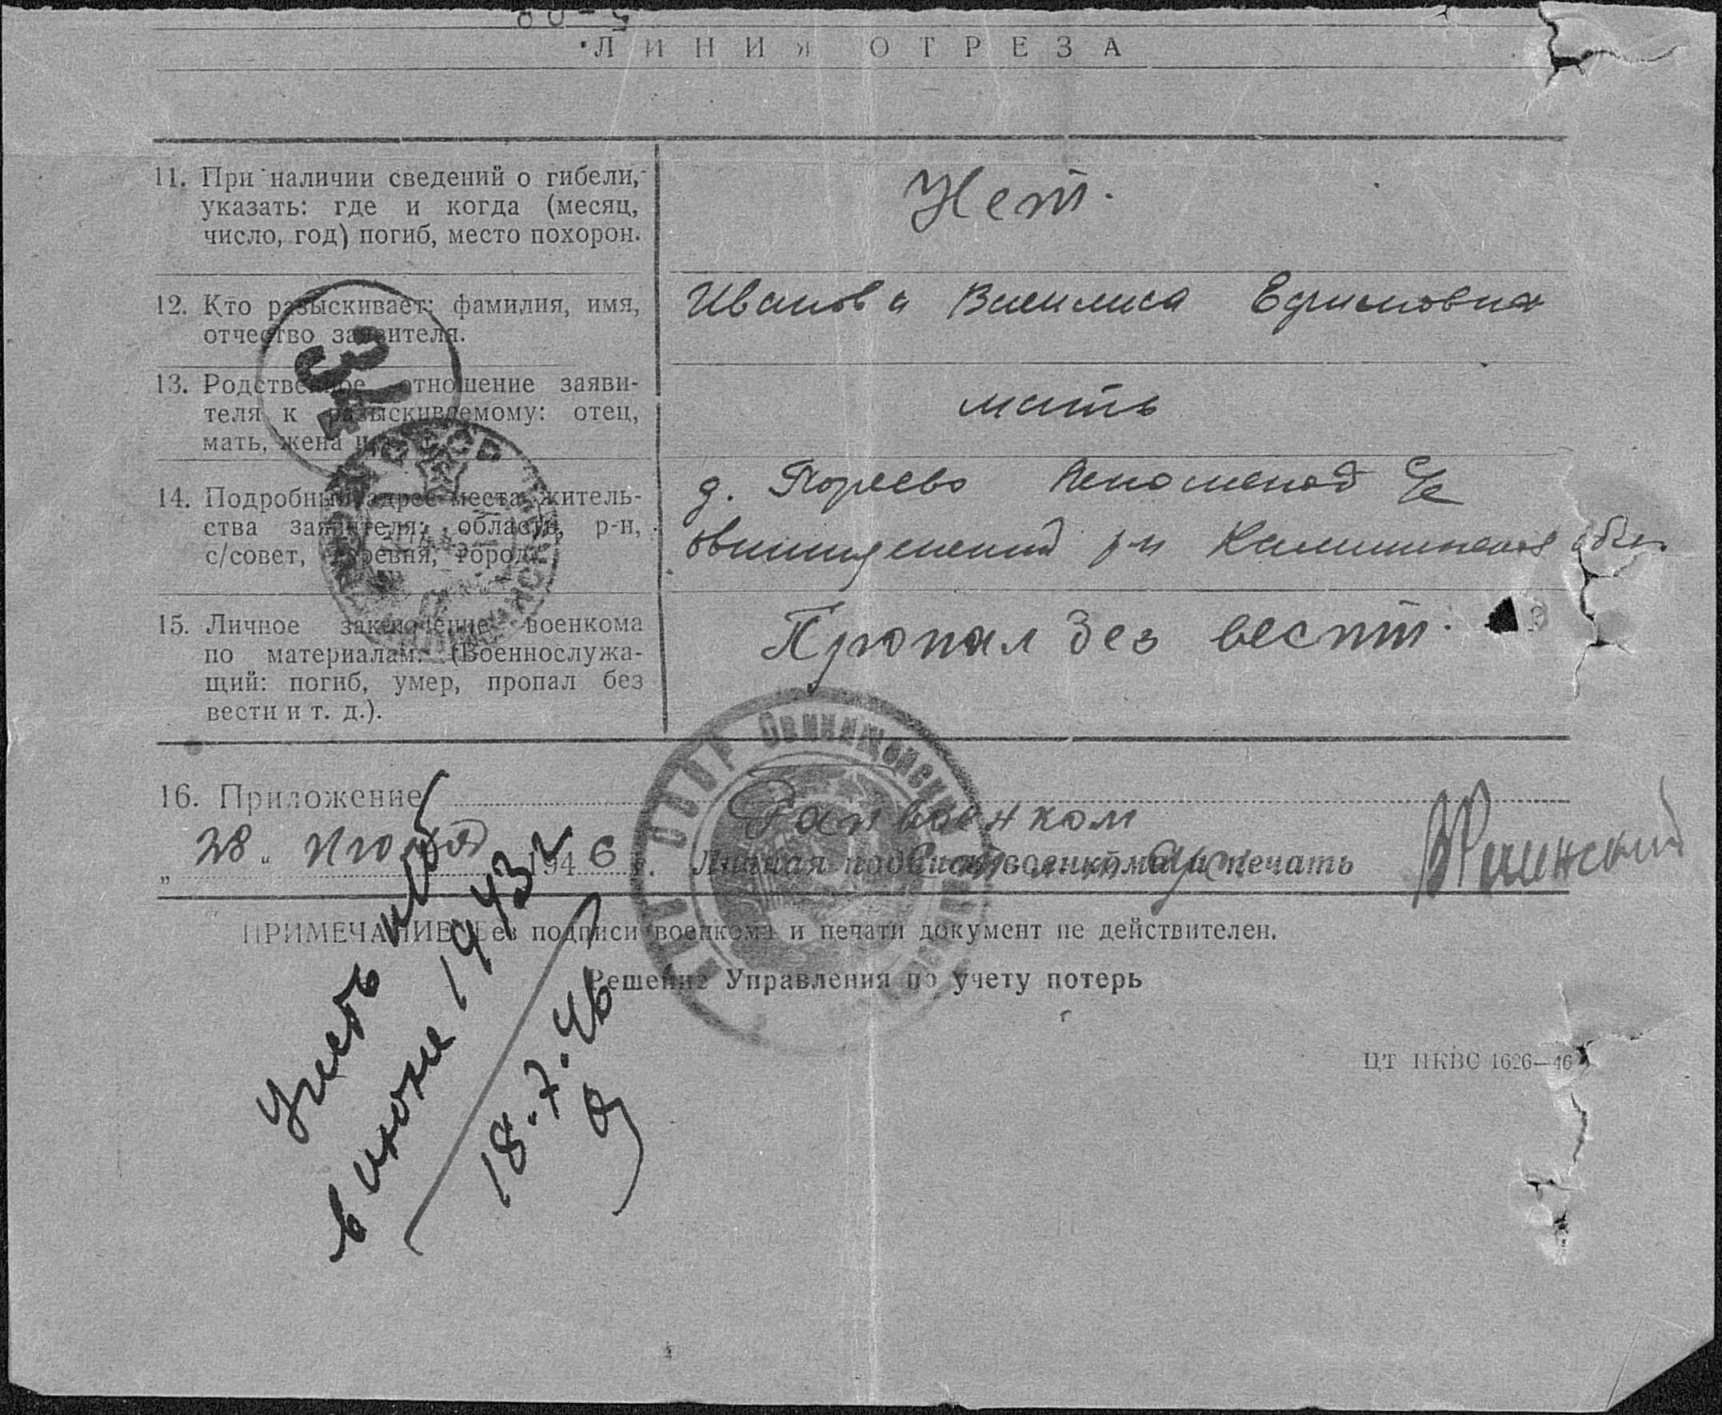 ЛИНИЯ ОТРЕЗА
11. При наличии сведений о гибели,
указать: где и когда (месяц,
число, год) погиб, место похорон.
Нет.
12. Кто разыскивает: фамилия, имя,
отчество заявителя.
Иванова Василиса Ефимовна
13. Родственное отношение заяви-
теля к разыскиваемому: отец,
мать, жена и т. д.
мать
14. Подробный адрес места житель-
ства заявителя: область, р-н,
с/совет, деревня, город.
д. с/с
Овинищенский р-н Калининской обл.
15. Личное заключение военкома
по материалам: (Военнослужа-
щий: погиб, умер, пропал без
вести и т. д.).
Пропал без вести.
16. Приложение
Райвоенком
„28„ 1946 г. Личная подпись военкома и печать
ПРИМЕЧАНИЕ: Без подписи военкома и печати документ не действителен.
Решение Управления по учету потерь
ЦТ НКВС 1626—46
Учесть
в июне 1943 г
18.7.46